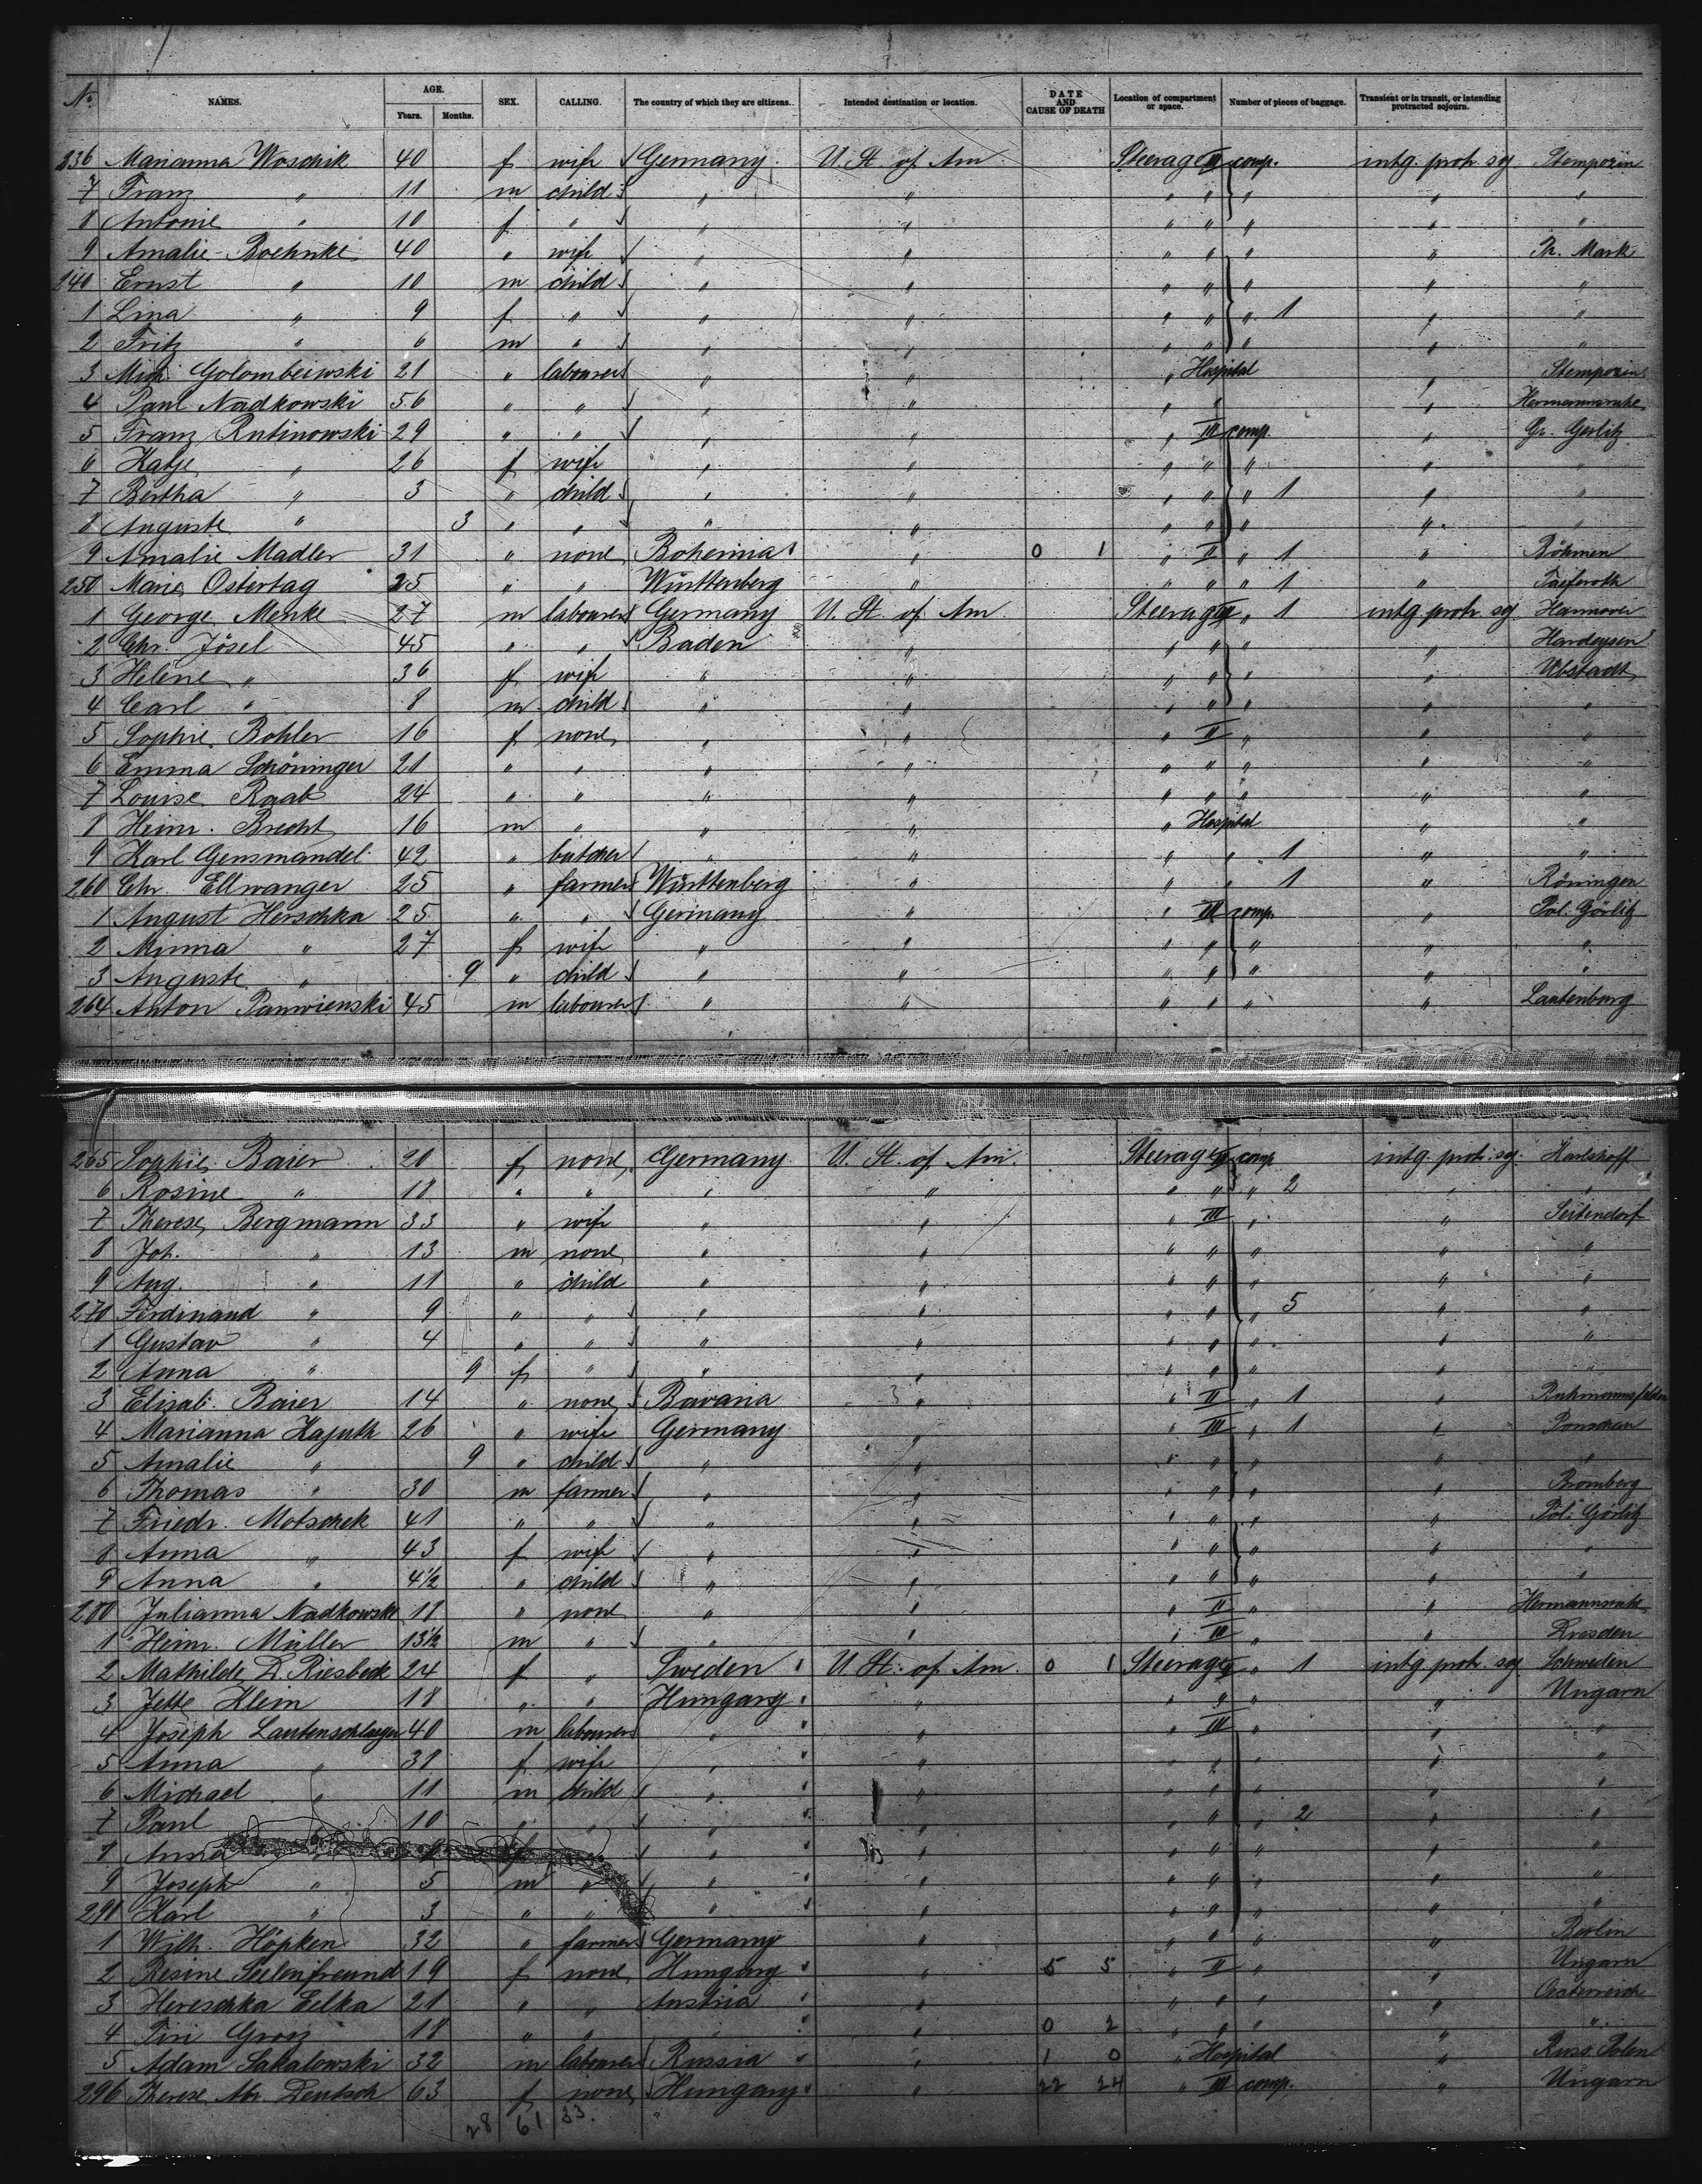 No. NAMES. AGE. Years. Months. SEX. CALLING. The country of which they are citizens. Intended destination or location. DATE AND CAUSE OF DEATH Location of compartment or space. Number of pieces of baggage. Transient or in transit, or intending protracted sojourn.
236 Marianna Woschik 40 f wife Germany U. St. of Am Steerage III comp. intg. protr. soj. Stemporin
7 Franz " 11 m child " " " " " " "
8 Antonie " 10 f " " " " " " " "
9 Amalie Boehnke 40 " wife " " " " " " Pr. Mark
240 Ernst " 10 m child " " " " " " "
1 Lina " 9 f " " " " " " 1 " "
2 Fritz " 6 m " " " " " " " "
3 Mich. Golombeiwski 21 " labourer " " " Hospital " Stemporin
4 Paul Nadkowski 56 " " " " " " " Hermannsruhe
5 Franz Rutinowski 29 " " " " " III comp. " Gr. Gerlitz
6 Katje " 26 f wife " " " " " " "
7 Bertha " 3 " child " " " " " 1 " "
8 Auguste " 3 " " " " " " " " "
9 Amalie Madler 31 " none Bohemia " 0 1 " II " 1 " Böhmen
250 Marie Ostertag 25 " " Württenberg " " " " 1 "
1 George Menke 27 m labourer Germany U. St. of Am Steerage " 1 intg. protr. soj. Hannover
2 Chr. Jösel 45 " " Baden " " " " "
3 Helene " 36 f wife " " " " " " Ubstadt
4 Carl " 8 m child " " " " " " "
5 Sophie Bohler 16 f none " " " II " " "
6 Emma Schöninger 21 " " " " " " " " "
7 Louise Raab 24 " " " " " " " " "
8 Heinr. Brecht 16 m " " " " Hospital " "
9 Karl Gensmandel 42 " butcher " " " " 1 " "
260 Chr. Ellwanger 25 " farmer Württenberg " " " 1 " Röningen
1 August Herschka 25 " " Germany " " III comp. " Pol. Görlitz
2 Minna " 27 f wife " " " " " " "
3 Auguste " 9 " child " " " " " " "
264 Anton Panwienski 45 m labourer " " " " " " Lautenburg
265 Sophie Baier 20 f none Germany U. St. of Am. Steerage comp intg. protr. soj. Karlshoff
6 Rosine " 18 " " " " " " " 2 " "
7 Therese Bergmann 33 " wife " " " III " " Seitendorf
8 Joh. " 13 m none " " " " " " "
9 Aug. " 11 " child " " " " " " "
270 Ferdinand " 9 " " " " " " " 5 " "
1 Gustav " 4 " " " " " " " " "
2 Anna " 9 f " " " " " " " "
3 Elisab. Baier 14 " none Bavaria " " II " 1 " Ruhmannsfelden
4 Marianna Kajuth 26 " wife Germany " " III " 1 "
5 Amalie " 9 " child " " " " " " "
6 Thomas " 30 m farmer " " " " " " Bromberg
7 Friedr. Motschek 41 " " " " " " " " Pol. Görlitz
8 Anna " 43 f wife " " " " " " "
9 Anna " 4½ " child " " " " " " "
280 Julianna Nadkowski 18 " none " " " II " " Hermannsruhe
1 Heinr. Müller 13½ m " " " " III " " Dresden
2 Mathilde D. Riesbeck 24 f " Sweden U. St. of Am. 0 1 Steerage " 1 intg. protr. soj. Schweden
3 Jette Klein 18 " " Hungary " " " " " Ungarn
4 Joseph Lautenschlaeger 40 m labourer " " " III " " "
5 Anna " 38 f wife " " " " " "
6 Michael " 11 m child " " " " " " "
7 Paul " 10 " " " " " " " 2 " "
8 Anna " f " " " " " " " "
9 Joseph " 5 m " " " " " " " "
290 Karl " 3 " " " " " " " "
1 Wilh. Höpken 32 " farmer Germany " " " " " Berlin
2 Resine Seelenfreund 19 f none Hungary " 5 5 " II " " Ungarn
3 Hereschka Eelka 21 " " Austria " " " " " Oesterreich
4 Piri Grosz 18 " " " " 0 2 " " " " "
5 Adam Sakalowski 32 m labourer Russia " 1 0 " Hospital " Russ. Polen
296 Therese Abr. Deutsch 63 f none Hungary " 22 24 " III comp. " Ungarn
28 61 33.